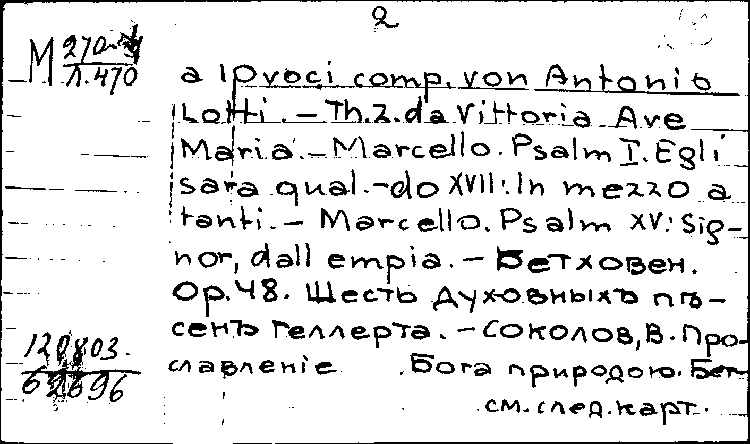 2
M 270-
Л.470
a 10 voci comp. von Antonio
Lotti. – Th. L. da Vittoria Ave
Maria. – Marcello. Psalm I. Egli
sara qual. – do XVII: In mezzo a
tanti. – Marcello. Psalm XV: Sig-
nor, dall empia. – Бетховен.
Op. 48. Шесть духовныхъ пѣ-
сенъ Геллерта. – Соколов, В. Про-
славленіе Бога природою. Бет-
см. след. карт.
120803.
62696